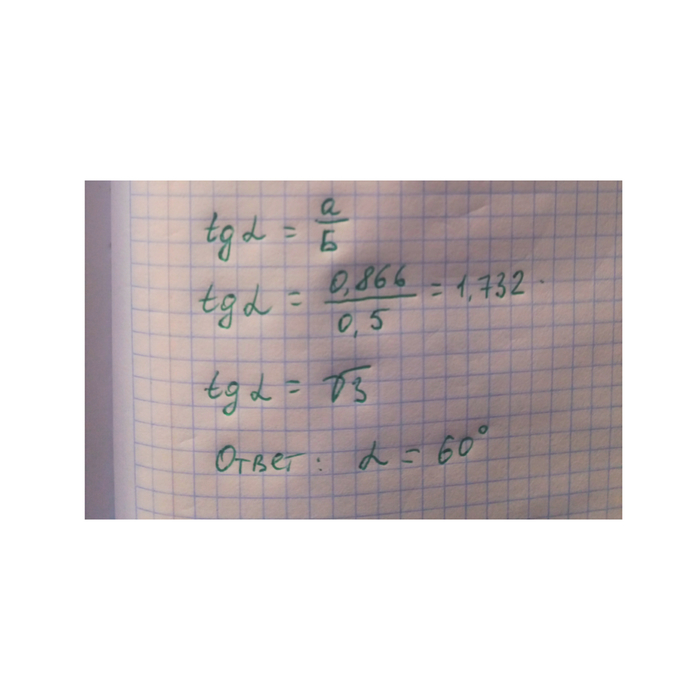 tg α = a/б
tg α = 0,866/0,5 = 1,732.
tg α = √3
Ответ: α = 60°